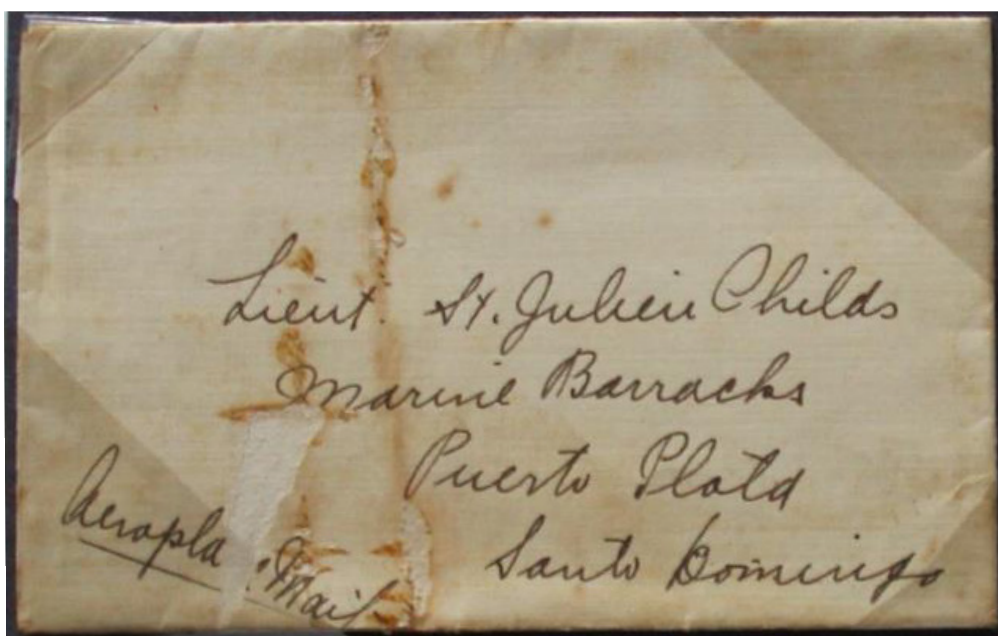 Lieut. St. Julien Childs
Marine Barracks
Puerto Plata
Santo Domingo
Aeropla Mail